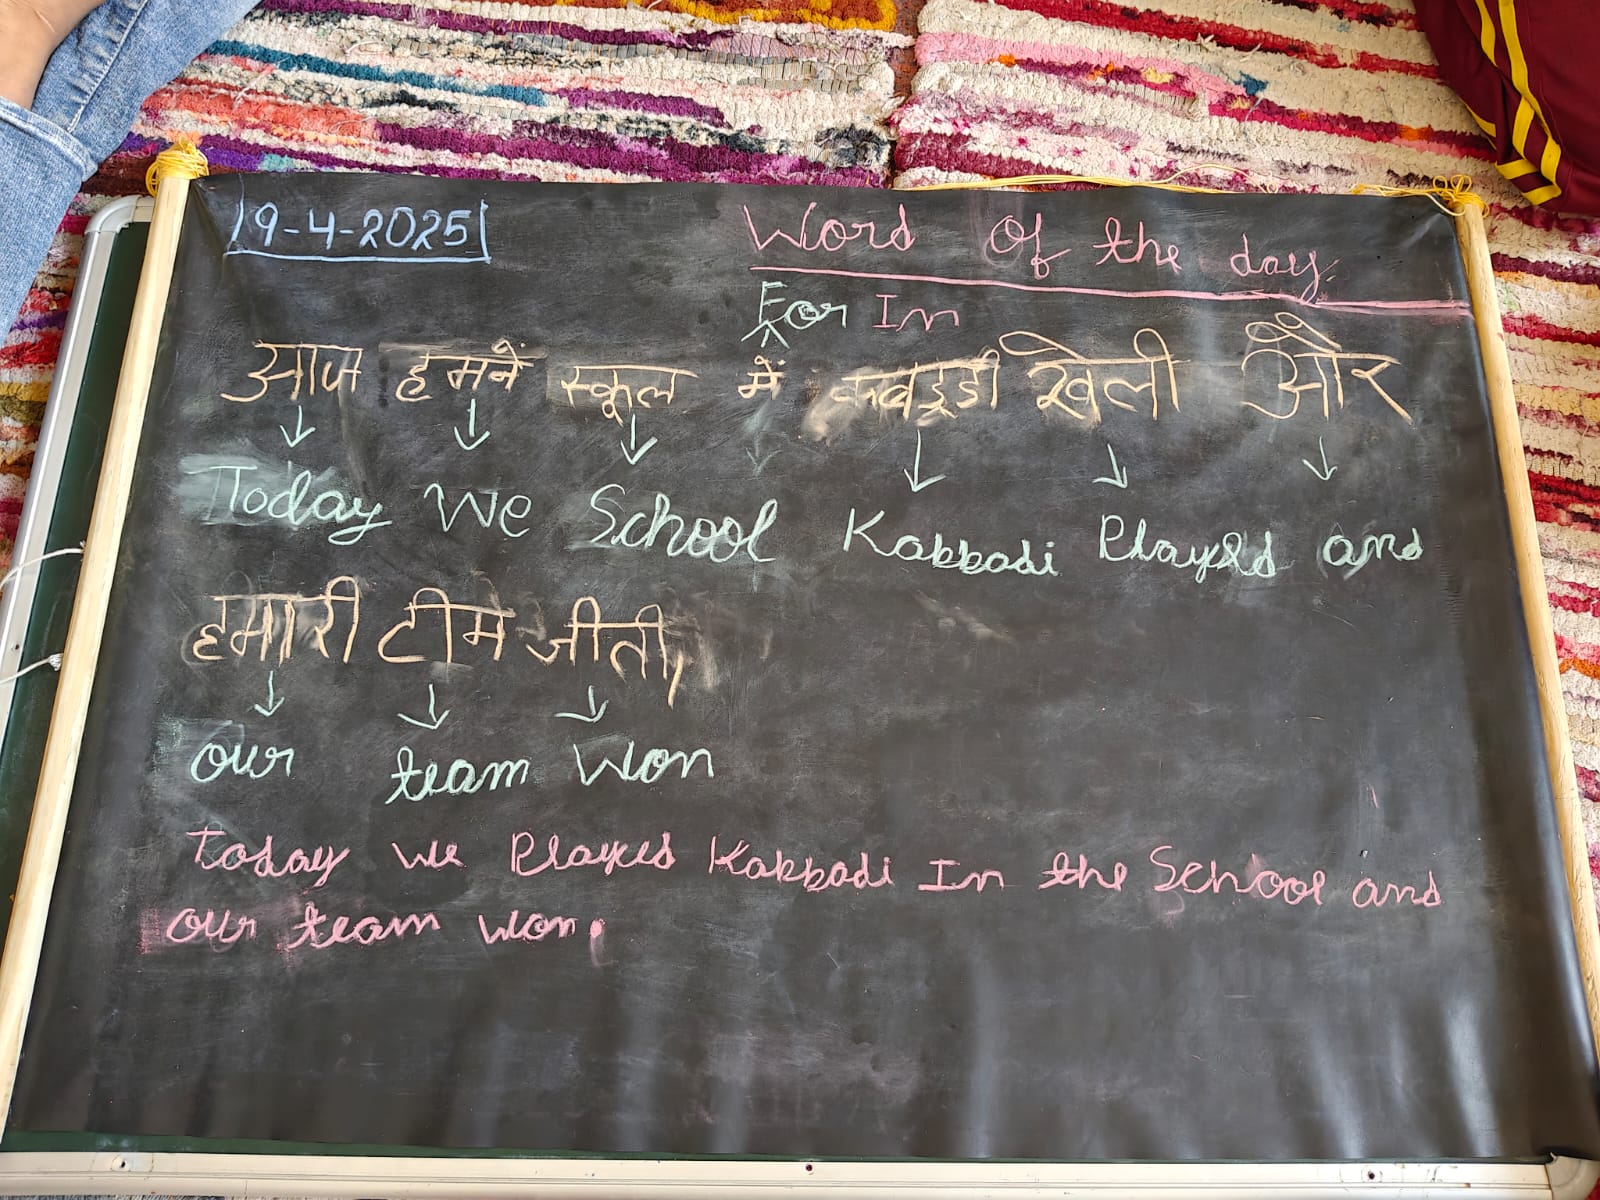 9-4-2025
Word Of the day
For In
आज हमनें स्कूल में कबड्डी खेली और
Today We School Kabbadi Played and
हमारी टीम जीती,
our team Won
Today we Played Kabbadi In the School and
our team won.